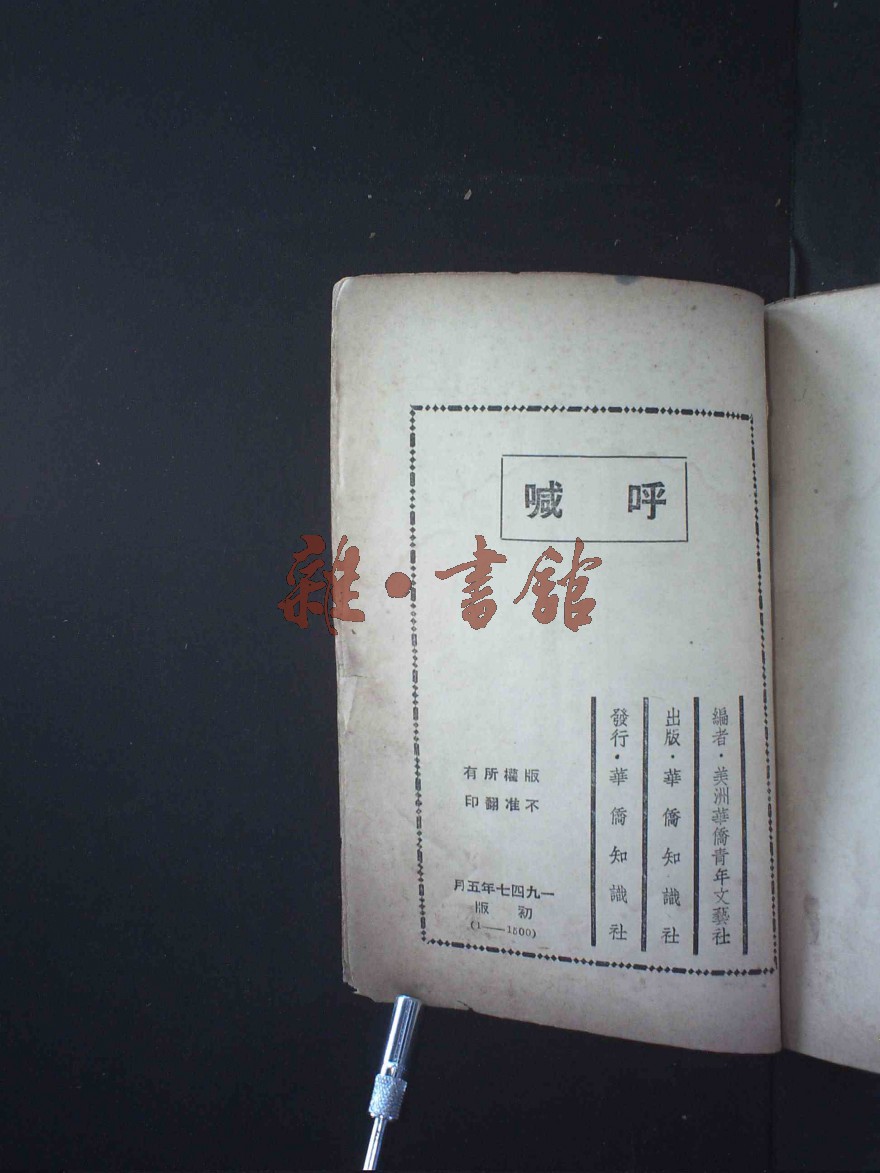 呼喊
雜·書館
編者·美洲華僑青年文藝社
出版·華僑知識社
發行·華僑知識社
版權所有
不准翻印
一九四七年五月
初版
(1——1500)